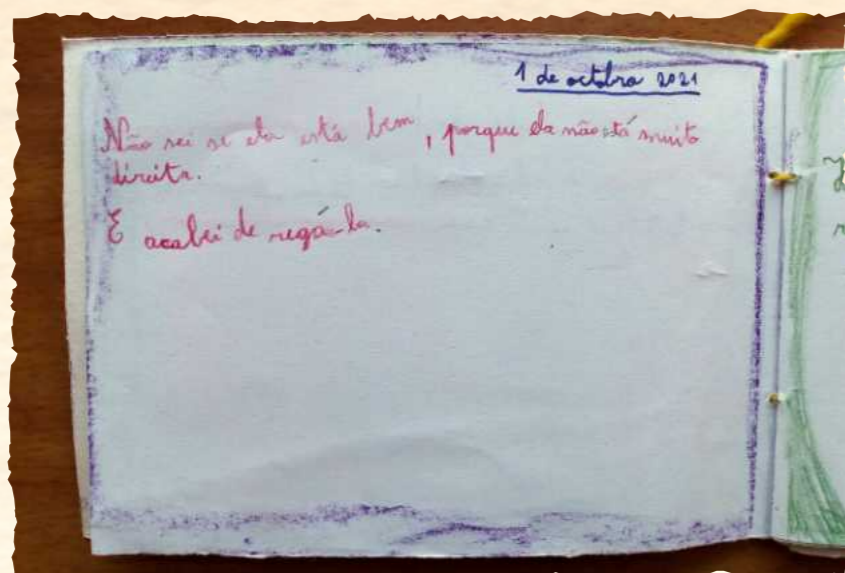 1 de octobro 2021
Não sei se ela está bem, porque ela não está muito
direita.
E acabei de regá-la.